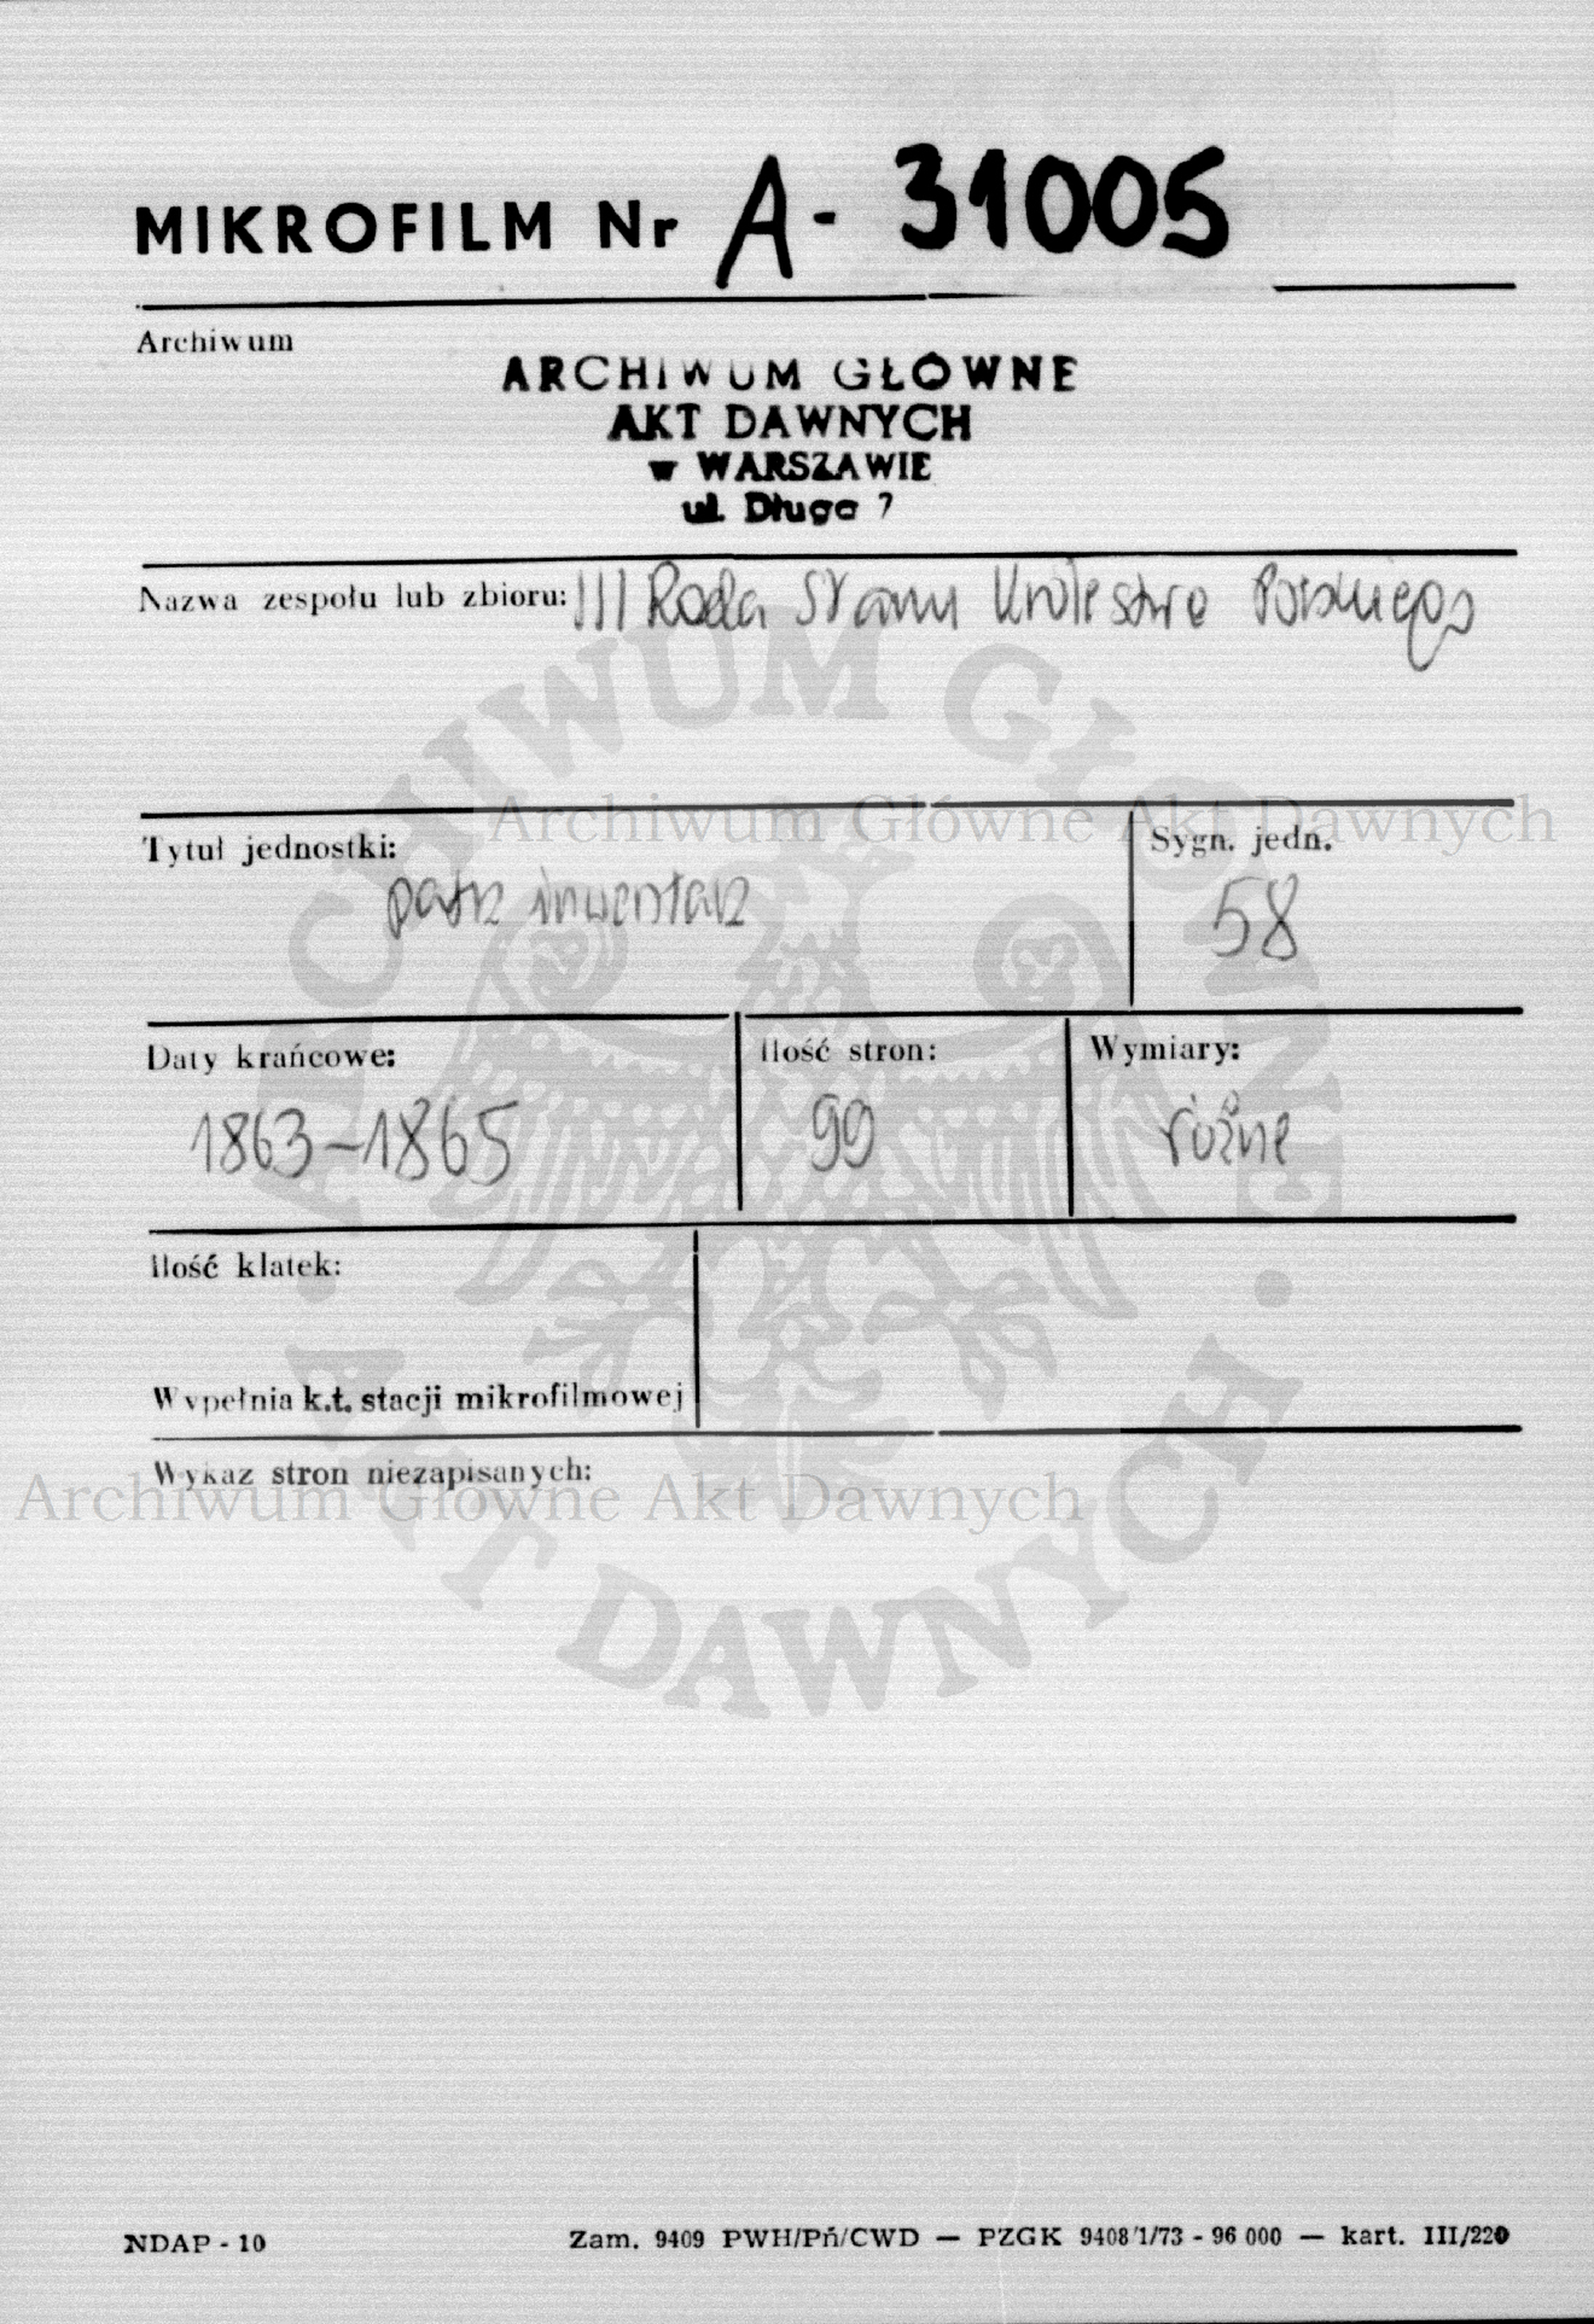 MIKROFILM Nr A- 31005
Archiwum
ARCHIWUM GŁÓWNE
AKT DAWNYCH
w WARSZAWIE
ul. Długa 7
Nazwa zespołu lub zbioru: III Rada Stanu Królestwa Polskiego
Archiwum Główne Akt Dawnych
Tytuł jednostki:
patrz inwentarz
Sygn. jedn.
58
Daty krańcowe:
1863-1865
Ilość stron:
99
Wymiary:
różne
Ilość klatek:
Wypełnia k.t. stacji mikrofilmowej
Wykaz stron niezapisanych:
Archiwum Główne Akt Dawnych
ARCHIWUM GŁÓWNE
• AKT DAWNYCH •
NDAP - 10
Zam. 9409 PWH/Pń/CWD — PZGK 9408/1/73 - 96 000 — kart. III/220